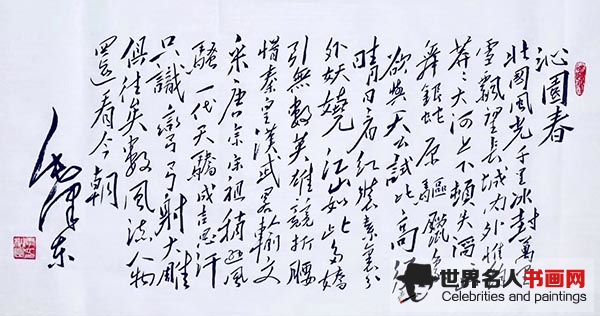 沁園春
北國風光千里冰封萬里
雪飄望長城內外惟餘
莽莽大河上下頓失滔
舞銀蛇原驅
欲與天公試比高須
晴日看紅裝素裹分
外妖嬈江山如此多嬌
引無數英雄競折腰
惜秦皇漢武略輸文
采唐宗宋祖稍遜風
騷一代天驕成吉思汗
只識彎弓射大雕
俱往矣數風流人物
還看今朝
毛澤东
世界名人书画网
Celebrities and paintings